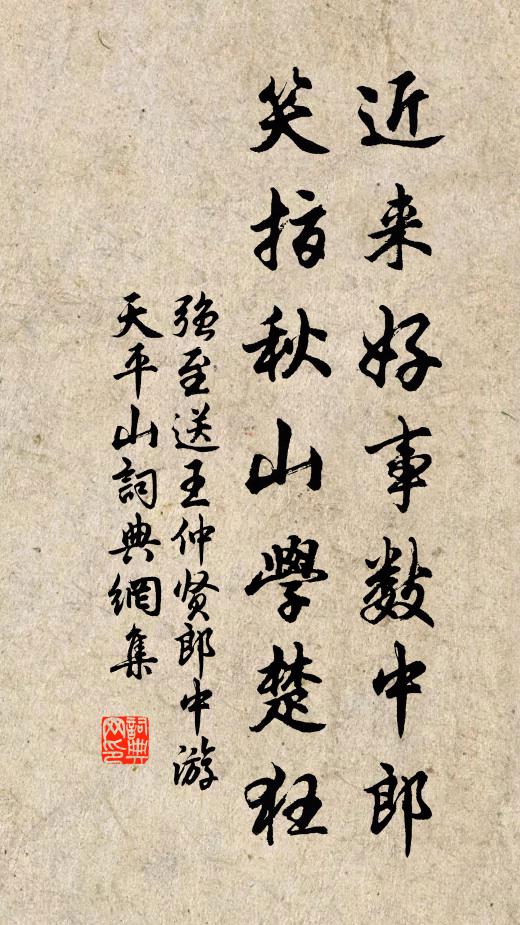 近来好事數中郎
笑指秋山學楚狂
強至送王仲贤郎中游
天平山詞典網集
詞典
网印